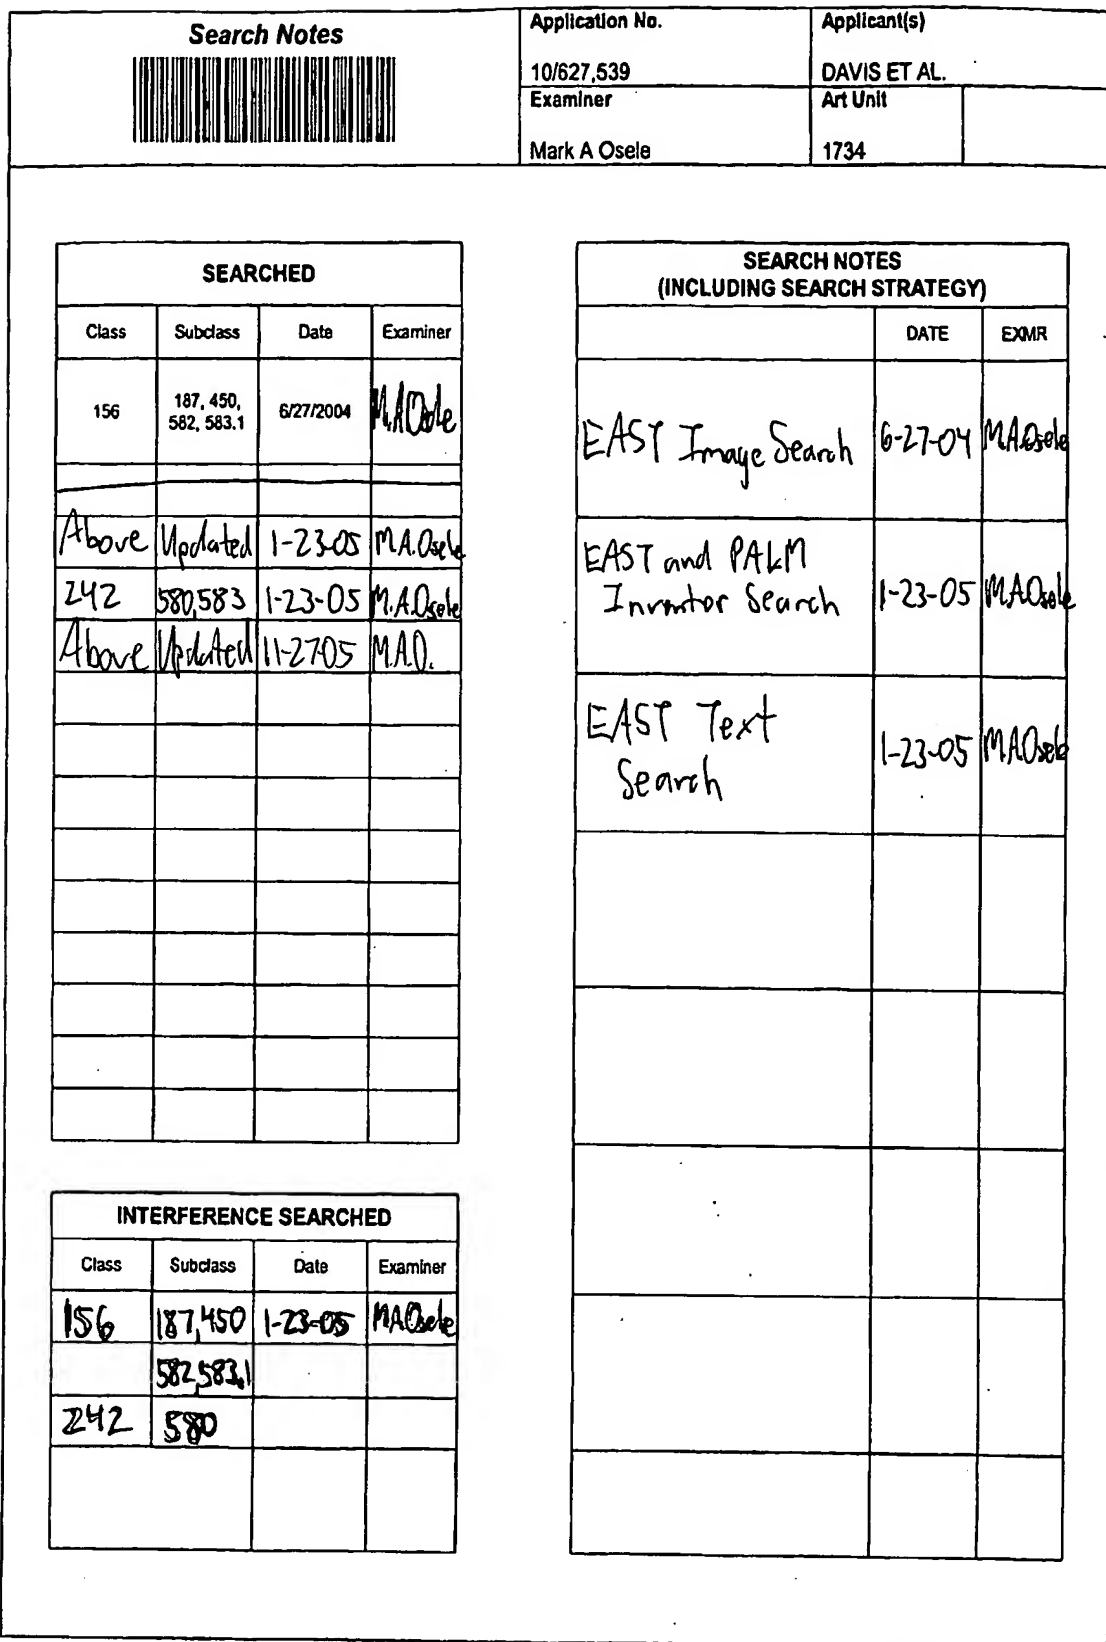 Search Notes
Application No.
Applicant(s)
10/627,539
DAVIS ET AL.
Examiner
Art Unit
Mark A Osele
1734
SEARCHED
Class Subclass Date Examiner
156 187, 450, 582, 583.1 6/27/2004 M.A.Osele
Above Updated 1-23-05 M.A.Osele
242 580,583 1-23-05 M.A.Osele
Above Updated 11-27-05 M.A.O.
INTERFERENCE SEARCHED
Class Subclass Date Examiner
156 187,450 1-23-05 M.A.Osele
582,583.1
242 580
SEARCH NOTES
(INCLUDING SEARCH STRATEGY)
DATE EXMR
EAST Image Search 6-27-04 M.A.Osele
EAST and PALM
Inventor Search 1-23-05 M.A.Osele
EAST Text
Search 1-23-05 M.A.Osele